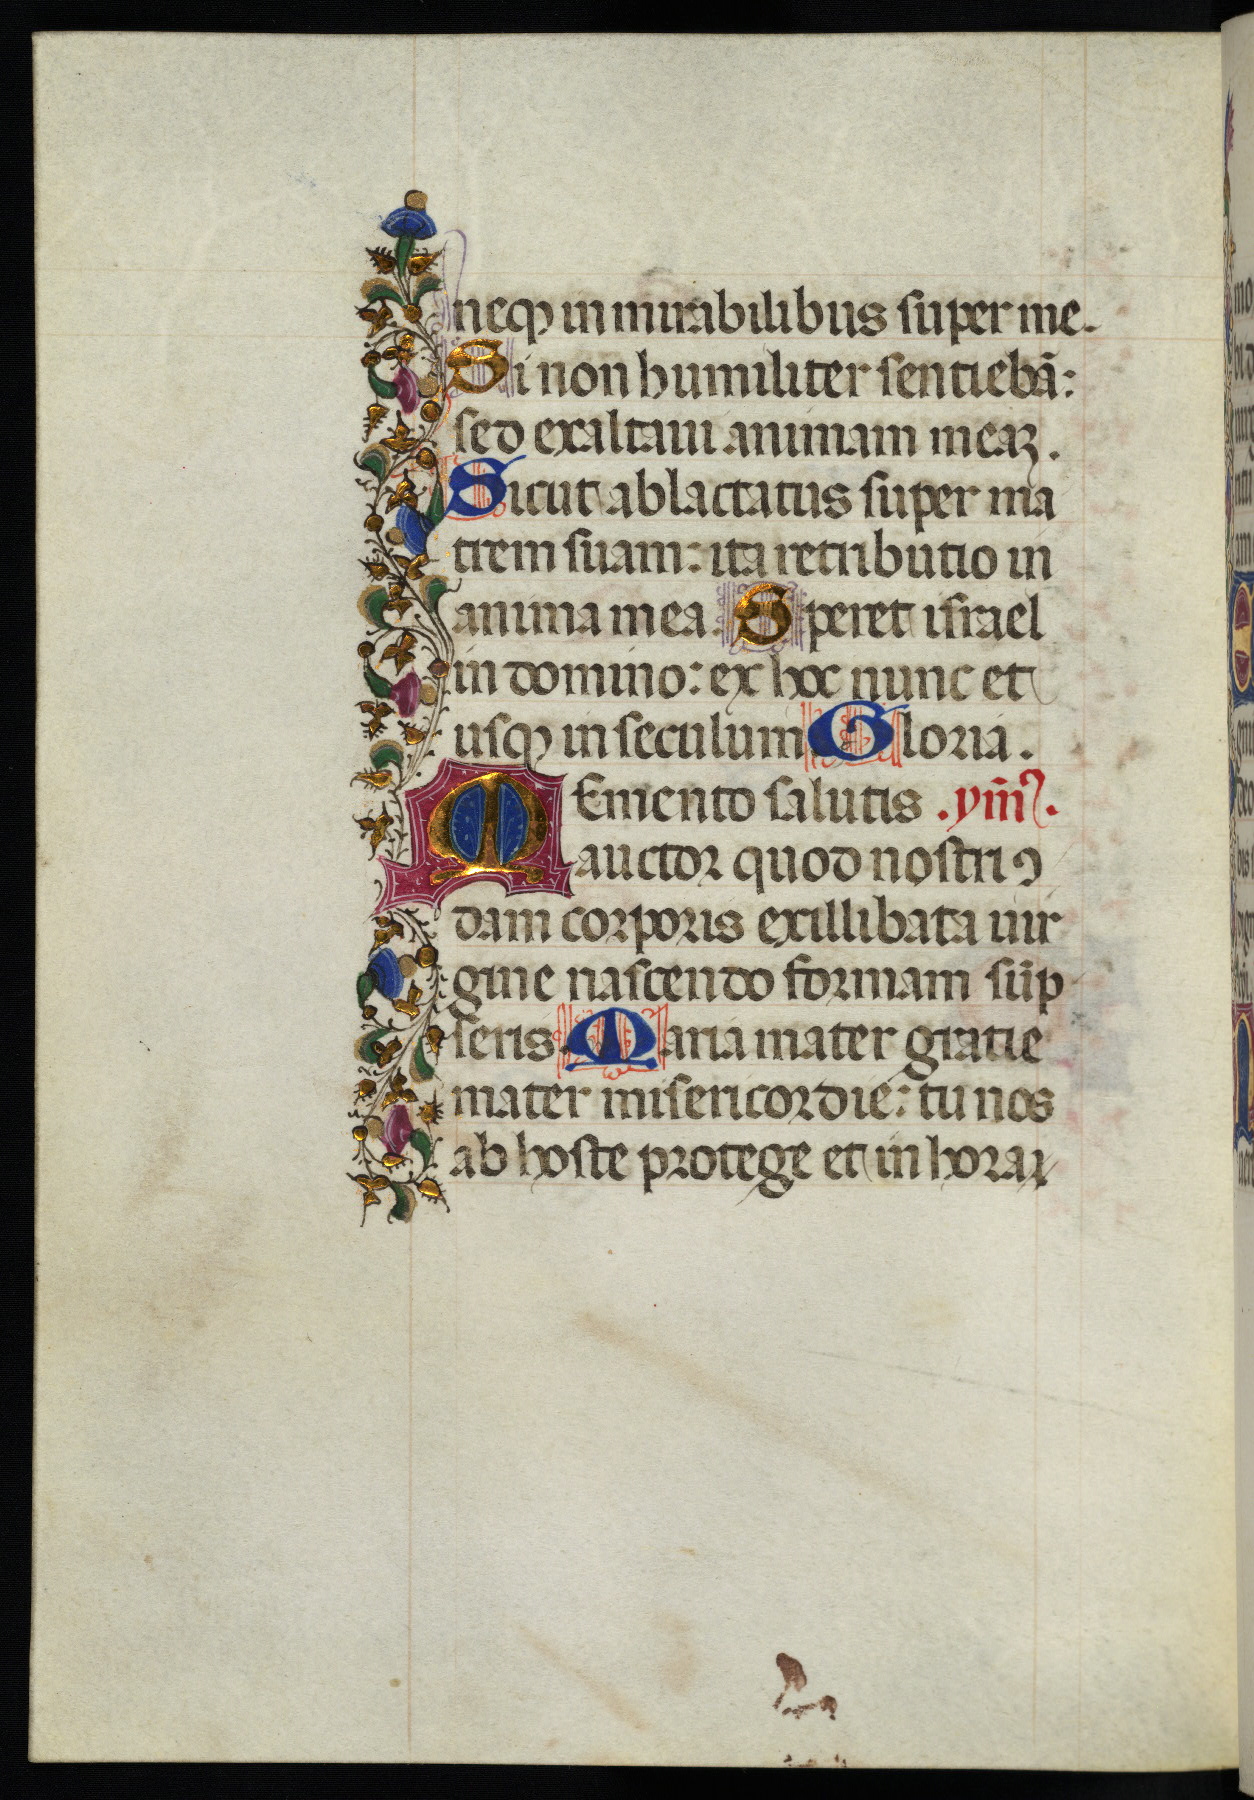 neqꝫ in mirabilibus super me.
Si non humiliter sentiebā:
sed exaltaui animam meaꝫ.
Sicut ablactatus super ma
trem suam: ita retributio in
anima mea. Speret israel
in domino: ex hoc nunc et
usqꝫ in seculum Gloria.
Memento salutis .ym̄s.
auctor quod nostri ꝙ
dam corporis ex illibata uir
gine nascendo formam sūp
seris. Maria mater gratie
mater misericordie: tu nos
ab hoste protege et in hora